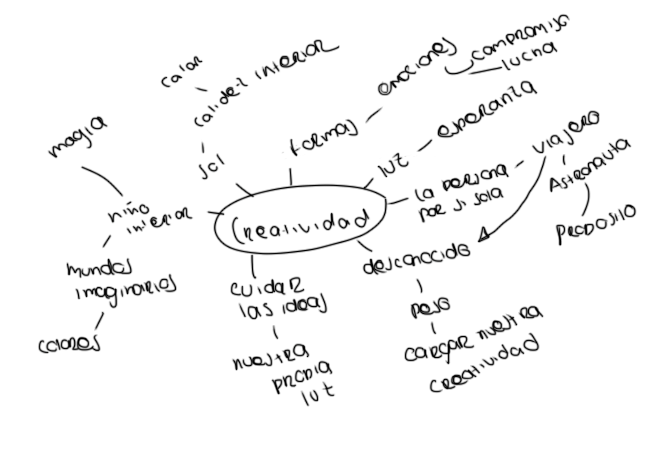 calor
calidez interior
sol
magia
niño
interior
mundos
imaginarios
colores
formas
emociones
compromiso
lucha
luz
esperanza
la persona
por si sola
viajero
Astronauta
Proposito
Creatividad
cuidar
las ideas
nuestra
propia
luz
desconocido
peso
cargar nuestra
creatividad